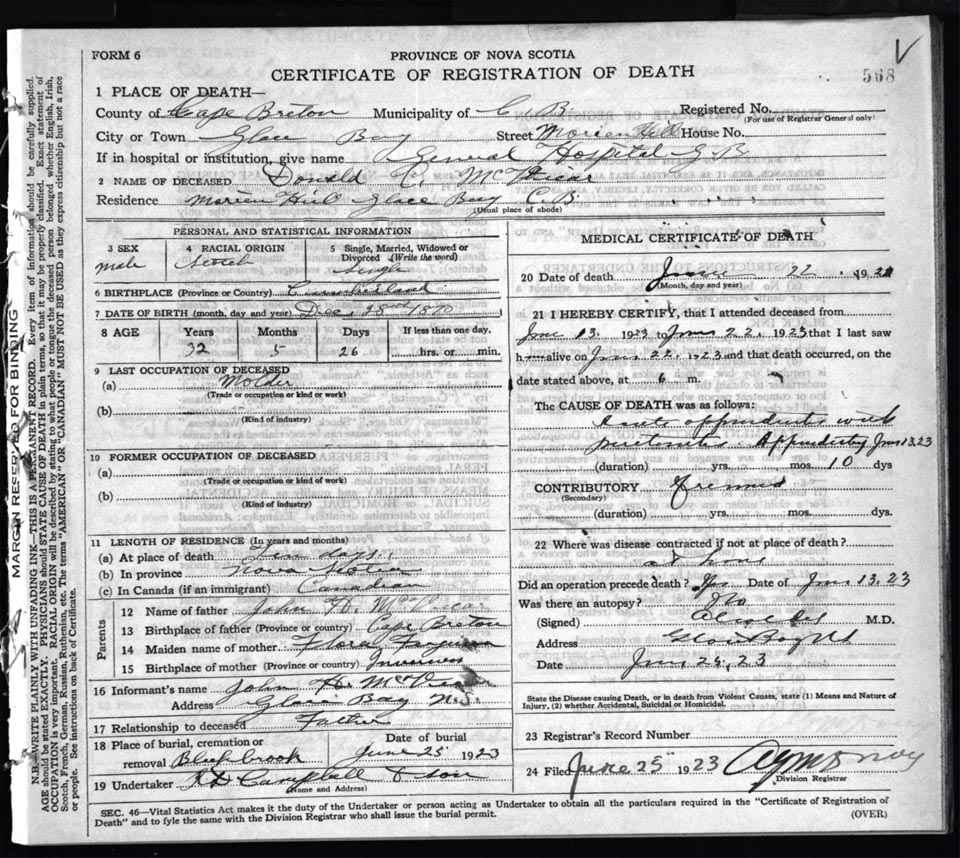 FORM 6
PROVINCE OF NOVA SCOTIA
CERTIFICATE OF REGISTRATION OF DEATH
568
1 PLACE OF DEATH—
County of Cape Breton Municipality of C B. Registered No.
(For use of Registrar General only)
City or Town Glace Bay Street Morien Hill House No.
If in hospital or institution, give name General Hospital G. B
2 NAME OF DECEASED Donald C. McVicar
Residence Morien Hill Glace Bay C. B.
(Usual place of abode)
PERSONAL AND STATISTICAL INFORMATION
3 SEX
male
4 RACIAL ORIGIN
Scotch
5 Single, Married, Widowed or Divorced (Write the word)
Single
6 BIRTHPLACE (Province or Country) Cumberland
7 DATE OF BIRTH (month, day and year) Dec.
8 AGE Years Months Days If less than one day,
32 5 26 hrs. or min.
9 LAST OCCUPATION OF DECEASED
(a) Molder
(Trade or occupation or kind or work)
(b)
(Kind of industry)
10 FORMER OCCUPATION OF DECEASED
(a)
(Trade or occupation or kind of work)
(b)
(Kind of industry)
11 LENGTH OF RESIDENCE (In years and months)
(a) At place of death Ten days
(b) In province Nova Scotia
(c) In Canada (if an immigrant) Canadian
Parents
12 Name of father John H. McVicar
13 Birthplace of father (Province or country) Cape Breton
14 Maiden name of mother Flora Ferguson
15 Birthplace of mother (Province or country) Inverness
16 Informant's name John H. McVicar
Address Glace Bay N.S.
17 Relationship to deceased Father
18 Place of burial, cremation or removal Blackbrook
Date of burial June 25 1923
19 Undertaker Campbell & son
(Name and Address)
MEDICAL CERTIFICATE OF DEATH
20 Date of death June 22 192
(Month, day and year)
21 I HEREBY CERTIFY, that I attended deceased from
June 13. 1923 to June 22, 1923 that I last saw
h alive on June 22, 1923 and that death occurred, on the
date stated above, at 6 m.
The CAUSE OF DEATH was as follows:
appendicitis with
peritonitis. June 13 23
(duration) yrs. mos. 10 dys
CONTRIBUTORY
(Secondary)
(duration) yrs. mos. dys.
22 Where was disease contracted if not at place of death?
at home
Did an operation precede death? Yes Date of June 13, 23
Was there an autopsy? No
(Signed) M.D.
Address Glace Bay NS
Date 23
State the Disease causing Death, or in death from Violent Causes, state (1) Means and Nature of
Injury, (2) whether Accidental, Suicidal or Homicidal.
23 Registrar's Record Number
24 Filed June 25 1923
Division Registrar
SEC. 46—Vital Statistics Act makes it the duty of the Undertaker or person acting as Undertaker to obtain all the particulars required in the "Certificate of Registration of
Death" and to fyle the same with the Division Registrar who shall issue the burial permit.
(OVER)
MARGIN RESERVED FOR BINDING
N.B.—WRITE PLAINLY WITH UNFADING INK—THIS IS A PERMANENT RECORD. Every item of information should be carefully supplied.
AGE should be stated EXACTLY. PHYSICIANS should STATE CAUSE OF DEATH in plain terms, so that it may be properly classified. Exact statement of
OCCUPATION is very important. RACIAL ORIGIN will be described by stating to what people or tongue the deceased person belonged whether English, Irish,
Scotch, French, German, Russian, Ruthenian, etc. The terms "AMERICAN" or "CANADIAN" MUST NOT BE USED as they express citizenship but not a race
or people. See instructions on back of Certificate.